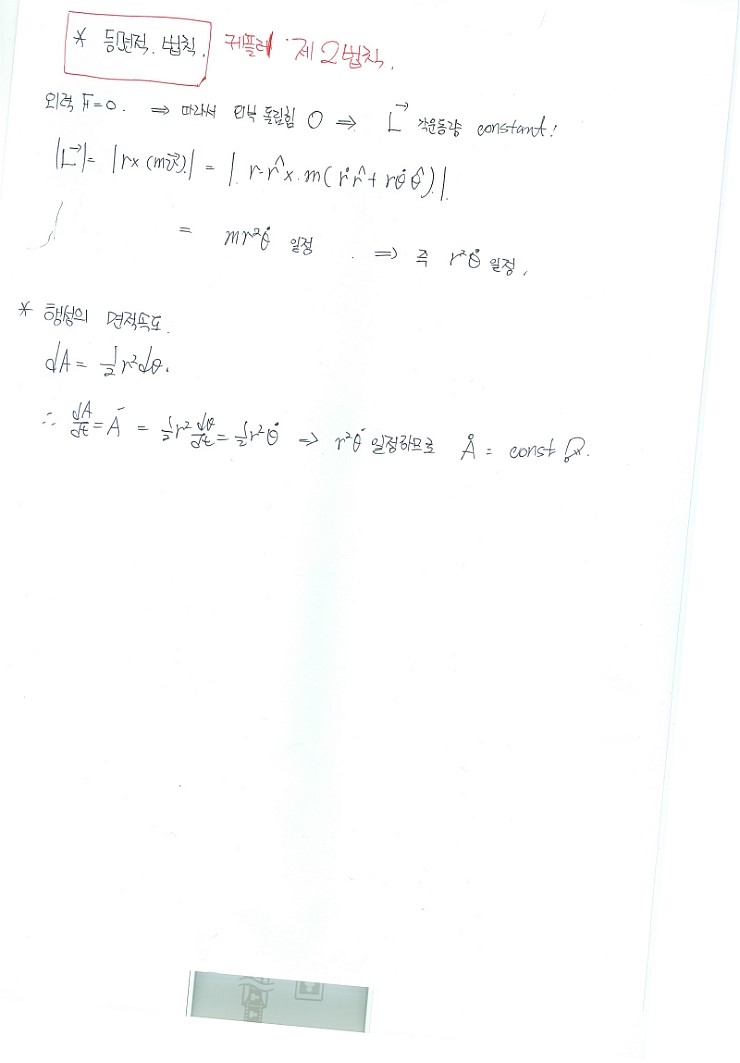 * 등면적. 법칙. 케플러 제2법칙.
외력 F=0. ⇒ 따라서 외부 돌림힘 0 ⇒ L⃗ 각운동량 constant!
|L⃗| = |r×(mv⃗)| = |r·r̂ × m(ṙr̂ + rθ̇θ̂)|.
= mr²θ̇ 일정. ⇒ 즉 r²θ̇ 일정.
* 행성의 면적속도.
dA = ½r²dθ.
∴ dA/dt = Ȧ = ½r² dθ/dt = ½r²θ̇ ⇒ r²θ̇ 일정하므로 Ȧ = const